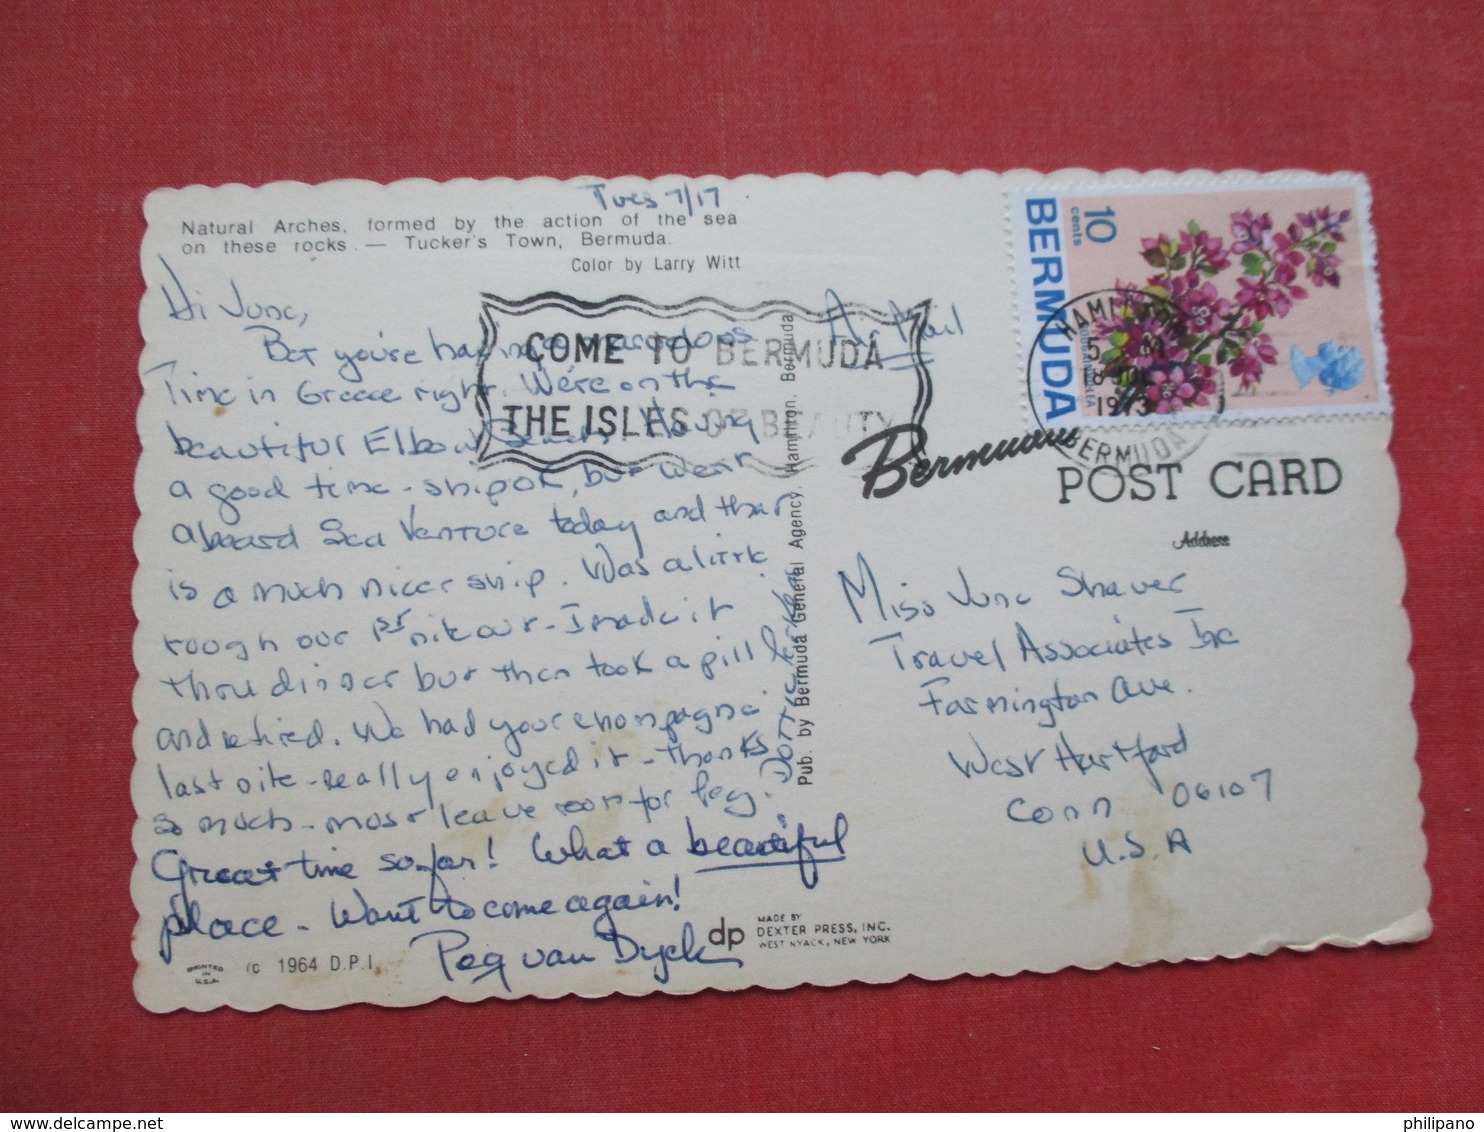 Tues 7/17
Natural Arches, formed by the action of the sea
on these rocks. — Tucker's Town, Bermuda.
Color by Larry Witt
Hi June,
Bet you're having a marvelous
Time in Greece right. We're on the
beautiful Elbow Beach. Having
a good time - ship ok, but went
aboard Sea Venture today and that
is a much nicer ship. Was a little
rough our 1st nite out - I made it
thru dinner but then took a pill
and retired. We had your champagne
last nite - really enjoyed it - thanks
so much - must leave room for Peg.
Great time so far! What a beautiful
place - Want to come again!
Peg van Dyck
PRINTED
IN
U.S.A.
(c 1964 D.P.I.
COME TO BERMUDA
THE ISLES OF BEAUTY
Pub. by Bermuda General Agency. Hamilton. Bermuda
dp
MADE BY
DEXTER PRESS, INC.
WEST NYACK, NEW YORK
Air Mail
BERMUDA
10
cents
HAMILTON
5
18 JUL
1973
BERMUDA
Bermuda
POST CARD
Address
Miss June Shaver
Travel Associates Inc
Farmington Ave.
West Hartford
Conn 06107
U.S.A
http://www.delcampe.net
philipano